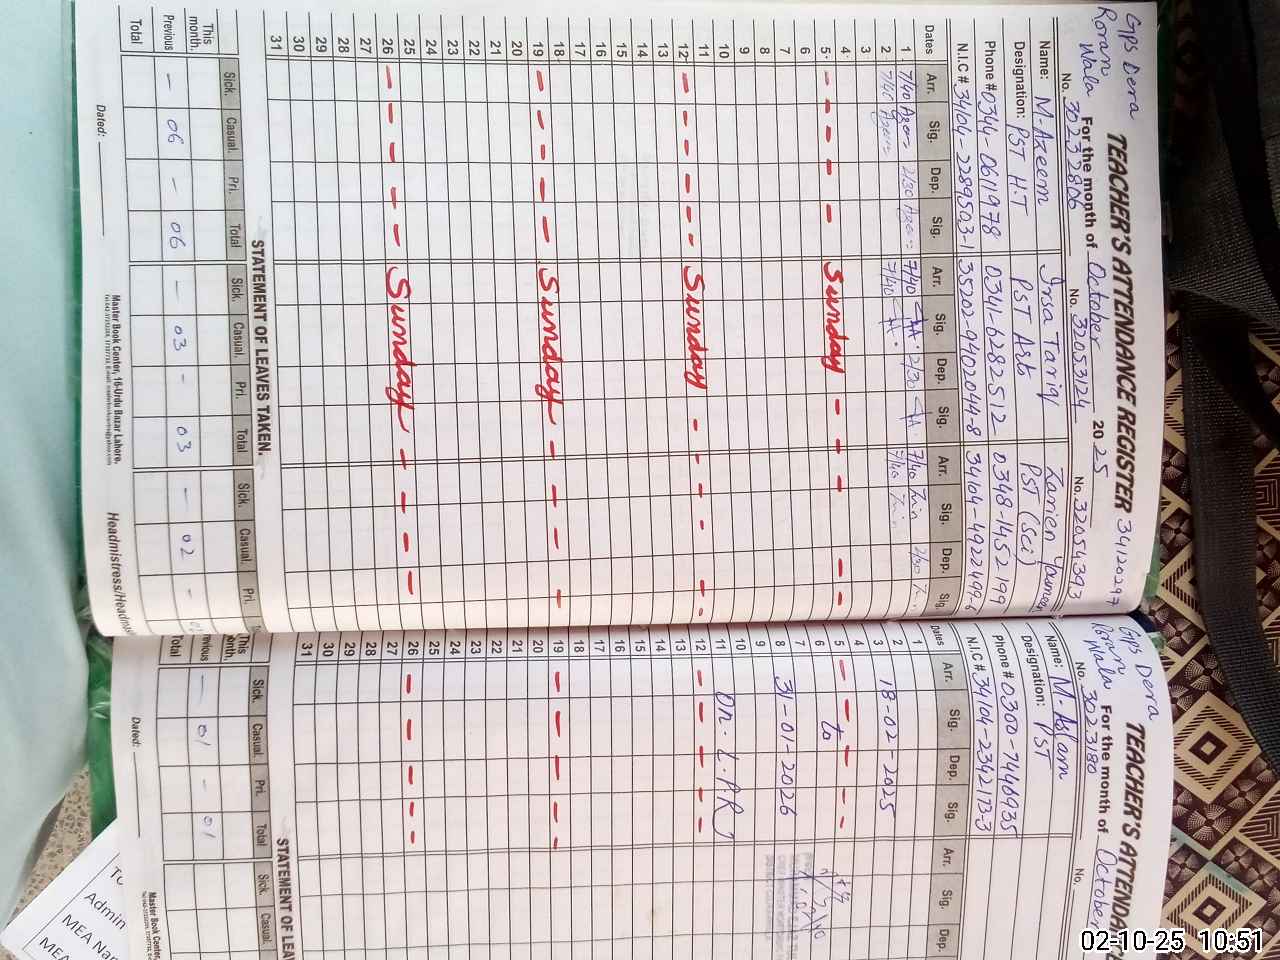 GPS Dera
Roran Wala
TEACHER'S ATTENDANCE REGISTER 34120297
For the month of October 2025
No. 30232806 No. 32053124 No. 32054393
Name: M. Azeem Irsa Tariq Zarien Youneen
Designation: PST H.T PST Arb PST (Sci)
Phone # 0344-0611978 0341-6282512 0348-1452199
N.I.C # 34104-2289503-1 35202-9402044-8 34104-4922499-6
Dates Arr. Sig. Dep. Sig. Arr. Sig. Dep. Sig. Arr. Sig. Dep. Sig.
1 7/40 Azeem 2/30 Azeem 7/40 2/30 7/40 2/30
2 7/40 Azeem 7/40 7/40
3
4
5 Sunday
6
7
8
9
10
11
12 Sunday
13
14
15
16
17
18
19 Sunday
20
21
22
23
24
25
26 Sunday
27
28
29
30
31
STATEMENT OF LEAVES TAKEN.
Sick. Casual. Pri. Total Sick. Casual. Pri. Total Sick. Casual. Pri.
This month.
Previous - 06 - 06 - 03 - 03 - 02 -
Total
Dated:
Headmistress/Headma
Master Book Center, 16-Urdu Bazar Lahore.
GPS Dera
Roran Wala
TEACHER'S ATTENDA
For the month of October
No. 3023180 No.
Name: M. Aslam
Designation: PST
Phone # 0300-7446935
N.I.C # 34104-2342173-3
Dates Arr. Sig. Dep. Sig. Arr. Sig. Dep.
1
2
3 18-02-2025
4
5 to
6
7
8 31-01-2026
9
10
11 On. L.P.R
12
13
14
15
16
17
18
19
20
21
22
23
24
25
26
27
28
29
30
31
STATEMENT OF LEA
Sick. Casual. Pri. Total Sick. Casual.
This month.
Previous - 01 - 01
Total
Dated:
Master Book Center,
Admin
MEA Nar
MEA
02-10-25 10:51